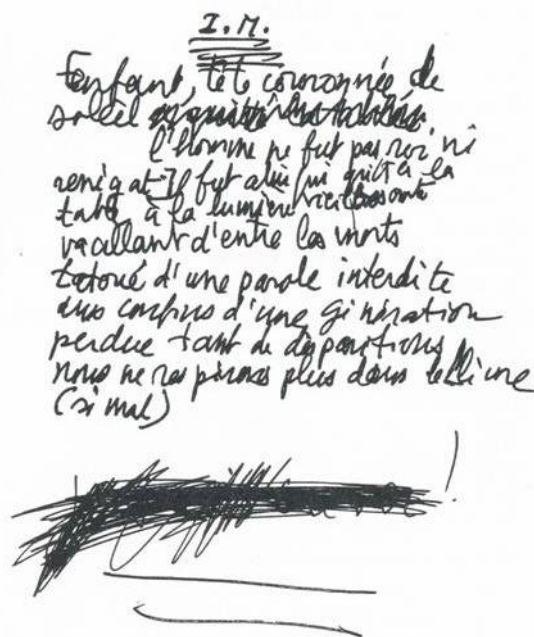 I.M.
Enfant, tête couronnée de
soleil
l'homme ne fut pas roi ni
renégat Il fut celui qui quitta la
table à la lumière
vacillant d'entre les morts
tatoué d'une parole interdite
aux confins d'une génération
perdue tant de disparitions
nous ne respirons plus dans le livre
(si mal)